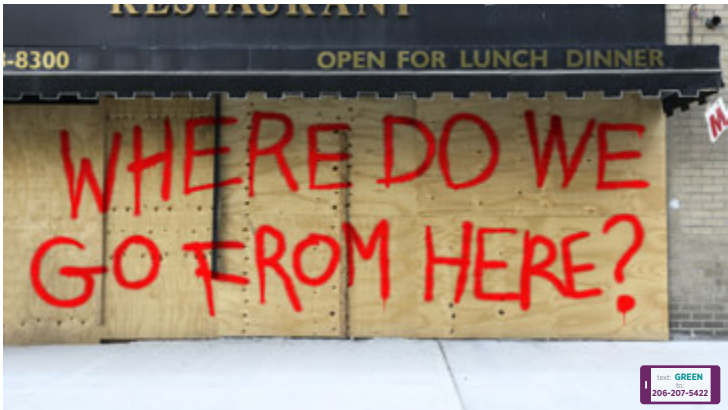 RESTAURANT
-8300
OPEN FOR LUNCH DINNER
WHERE DO WE
GO FROM HERE?
M
text: GREEN
to:
206-207-5422